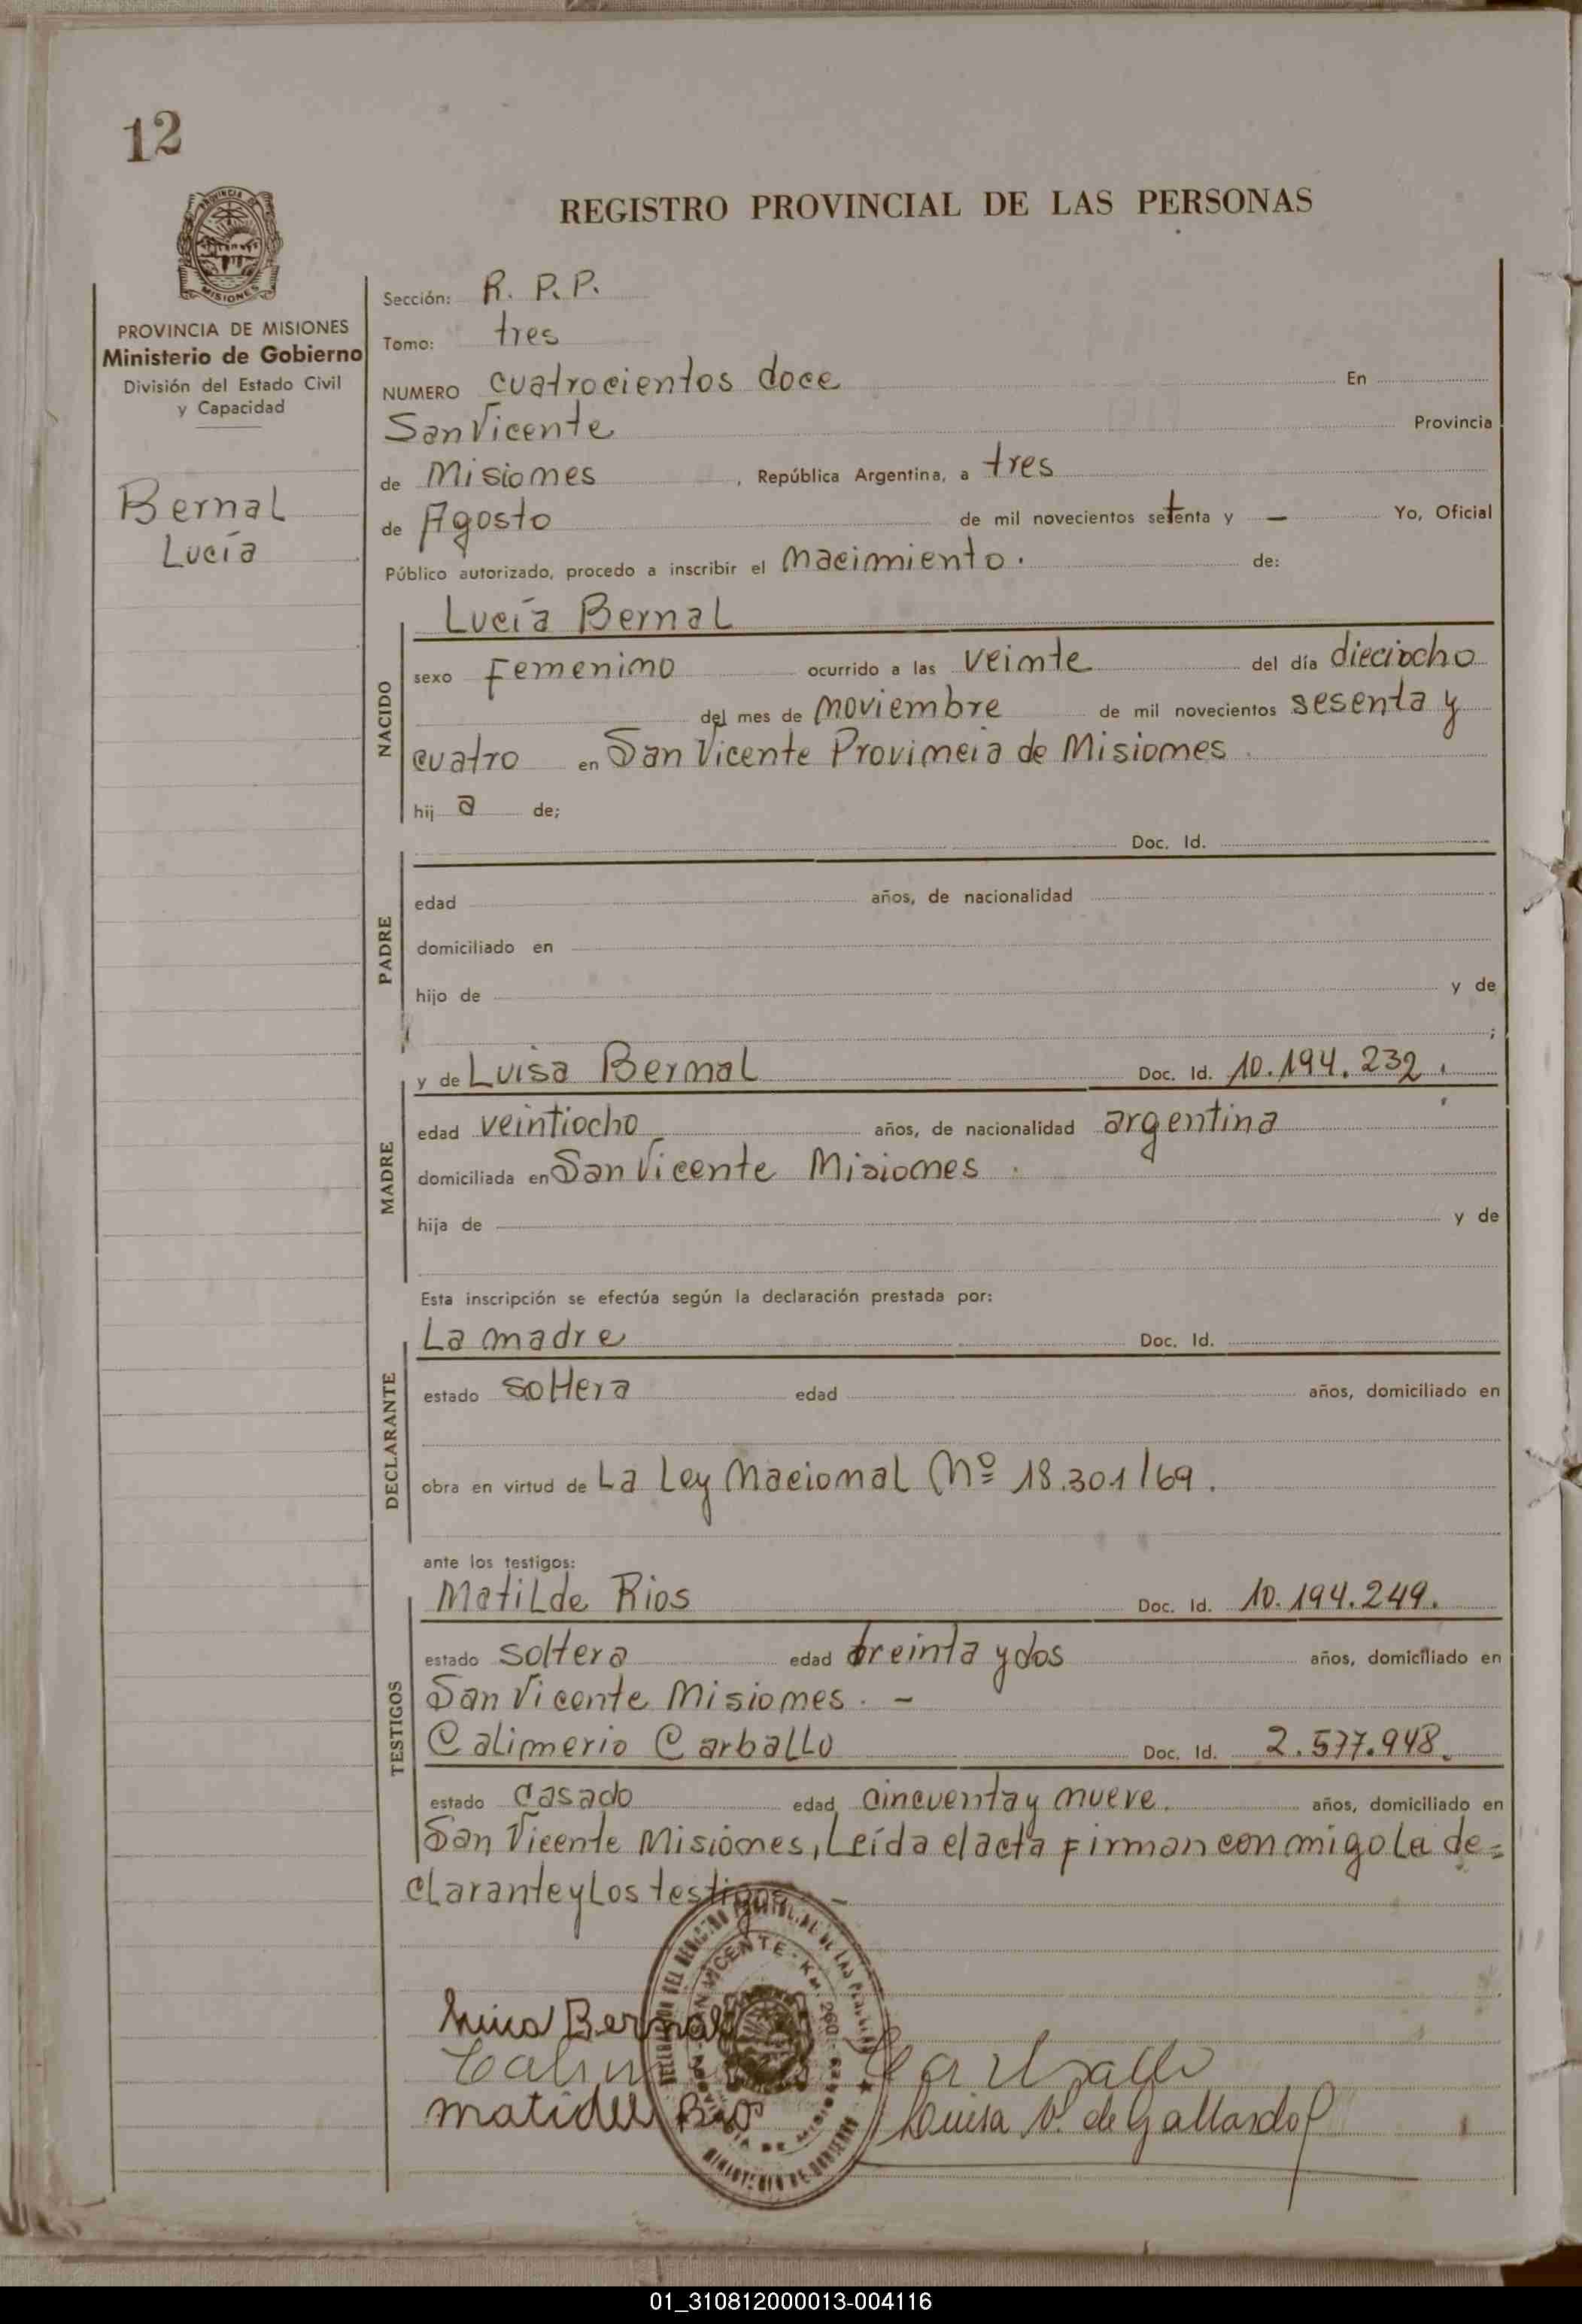 12
REGISTRO PROVINCIAL DE LAS PERSONAS
MISIONES
PROVINCIA DE MISIONES
Ministerio de Gobierno
División del Estado Civil
y Capacidad
Bernal
Lucía
Sección: R. P. P.
Tomo: tres
NUMERO cuatrocientos doce En
San Vicente Provincia
de Misiones , República Argentina, a tres
de Agosto de mil novecientos setenta y — Yo, Oficial
Público autorizado, procedo a inscribir el nacimiento. de:
NACIDO
Lucía Bernal
sexo Femenino ocurrido a las veinte del día dieciocho
del mes de noviembre de mil novecientos sesenta y
cuatro en San Vicente Provincia de Misiones
hij a de;
PADRE
Doc. Id.
edad años, de nacionalidad
domiciliado en
hijo de y de
;
MADRE
y de Luisa Bernal Doc. Id. 10.194.232.
edad veintiocho años, de nacionalidad argentina
domiciliada en San Vicente Misiones .
hija de y de
Esta inscripción se efectúa según la declaración prestada por:
DECLARANTE
La madre Doc. Id.
estado soltera edad años, domiciliado en
obra en virtud de La Ley Nacional Nº 18.301/69.
ante los testigos:
TESTIGOS
Matilde Rios Doc. Id. 10.194.249.
estado soltera edad treinta y dos años, domiciliado en
San Vicente Misiones. -
Calimerio Carballo Doc. Id. 2.577.948.
estado casado edad cincuenta y nueve. años, domiciliado en
San Vicente Misiones, Leída el acta firman conmigo la de=
clarante y los testigos -
Luisa Bernal
Carballo
Matilde Rios
Luisa V. de Gallardo
SAN VICENTE - KM. 260
MINISTERIO DE GOBIERNO
01_310812000013-004116